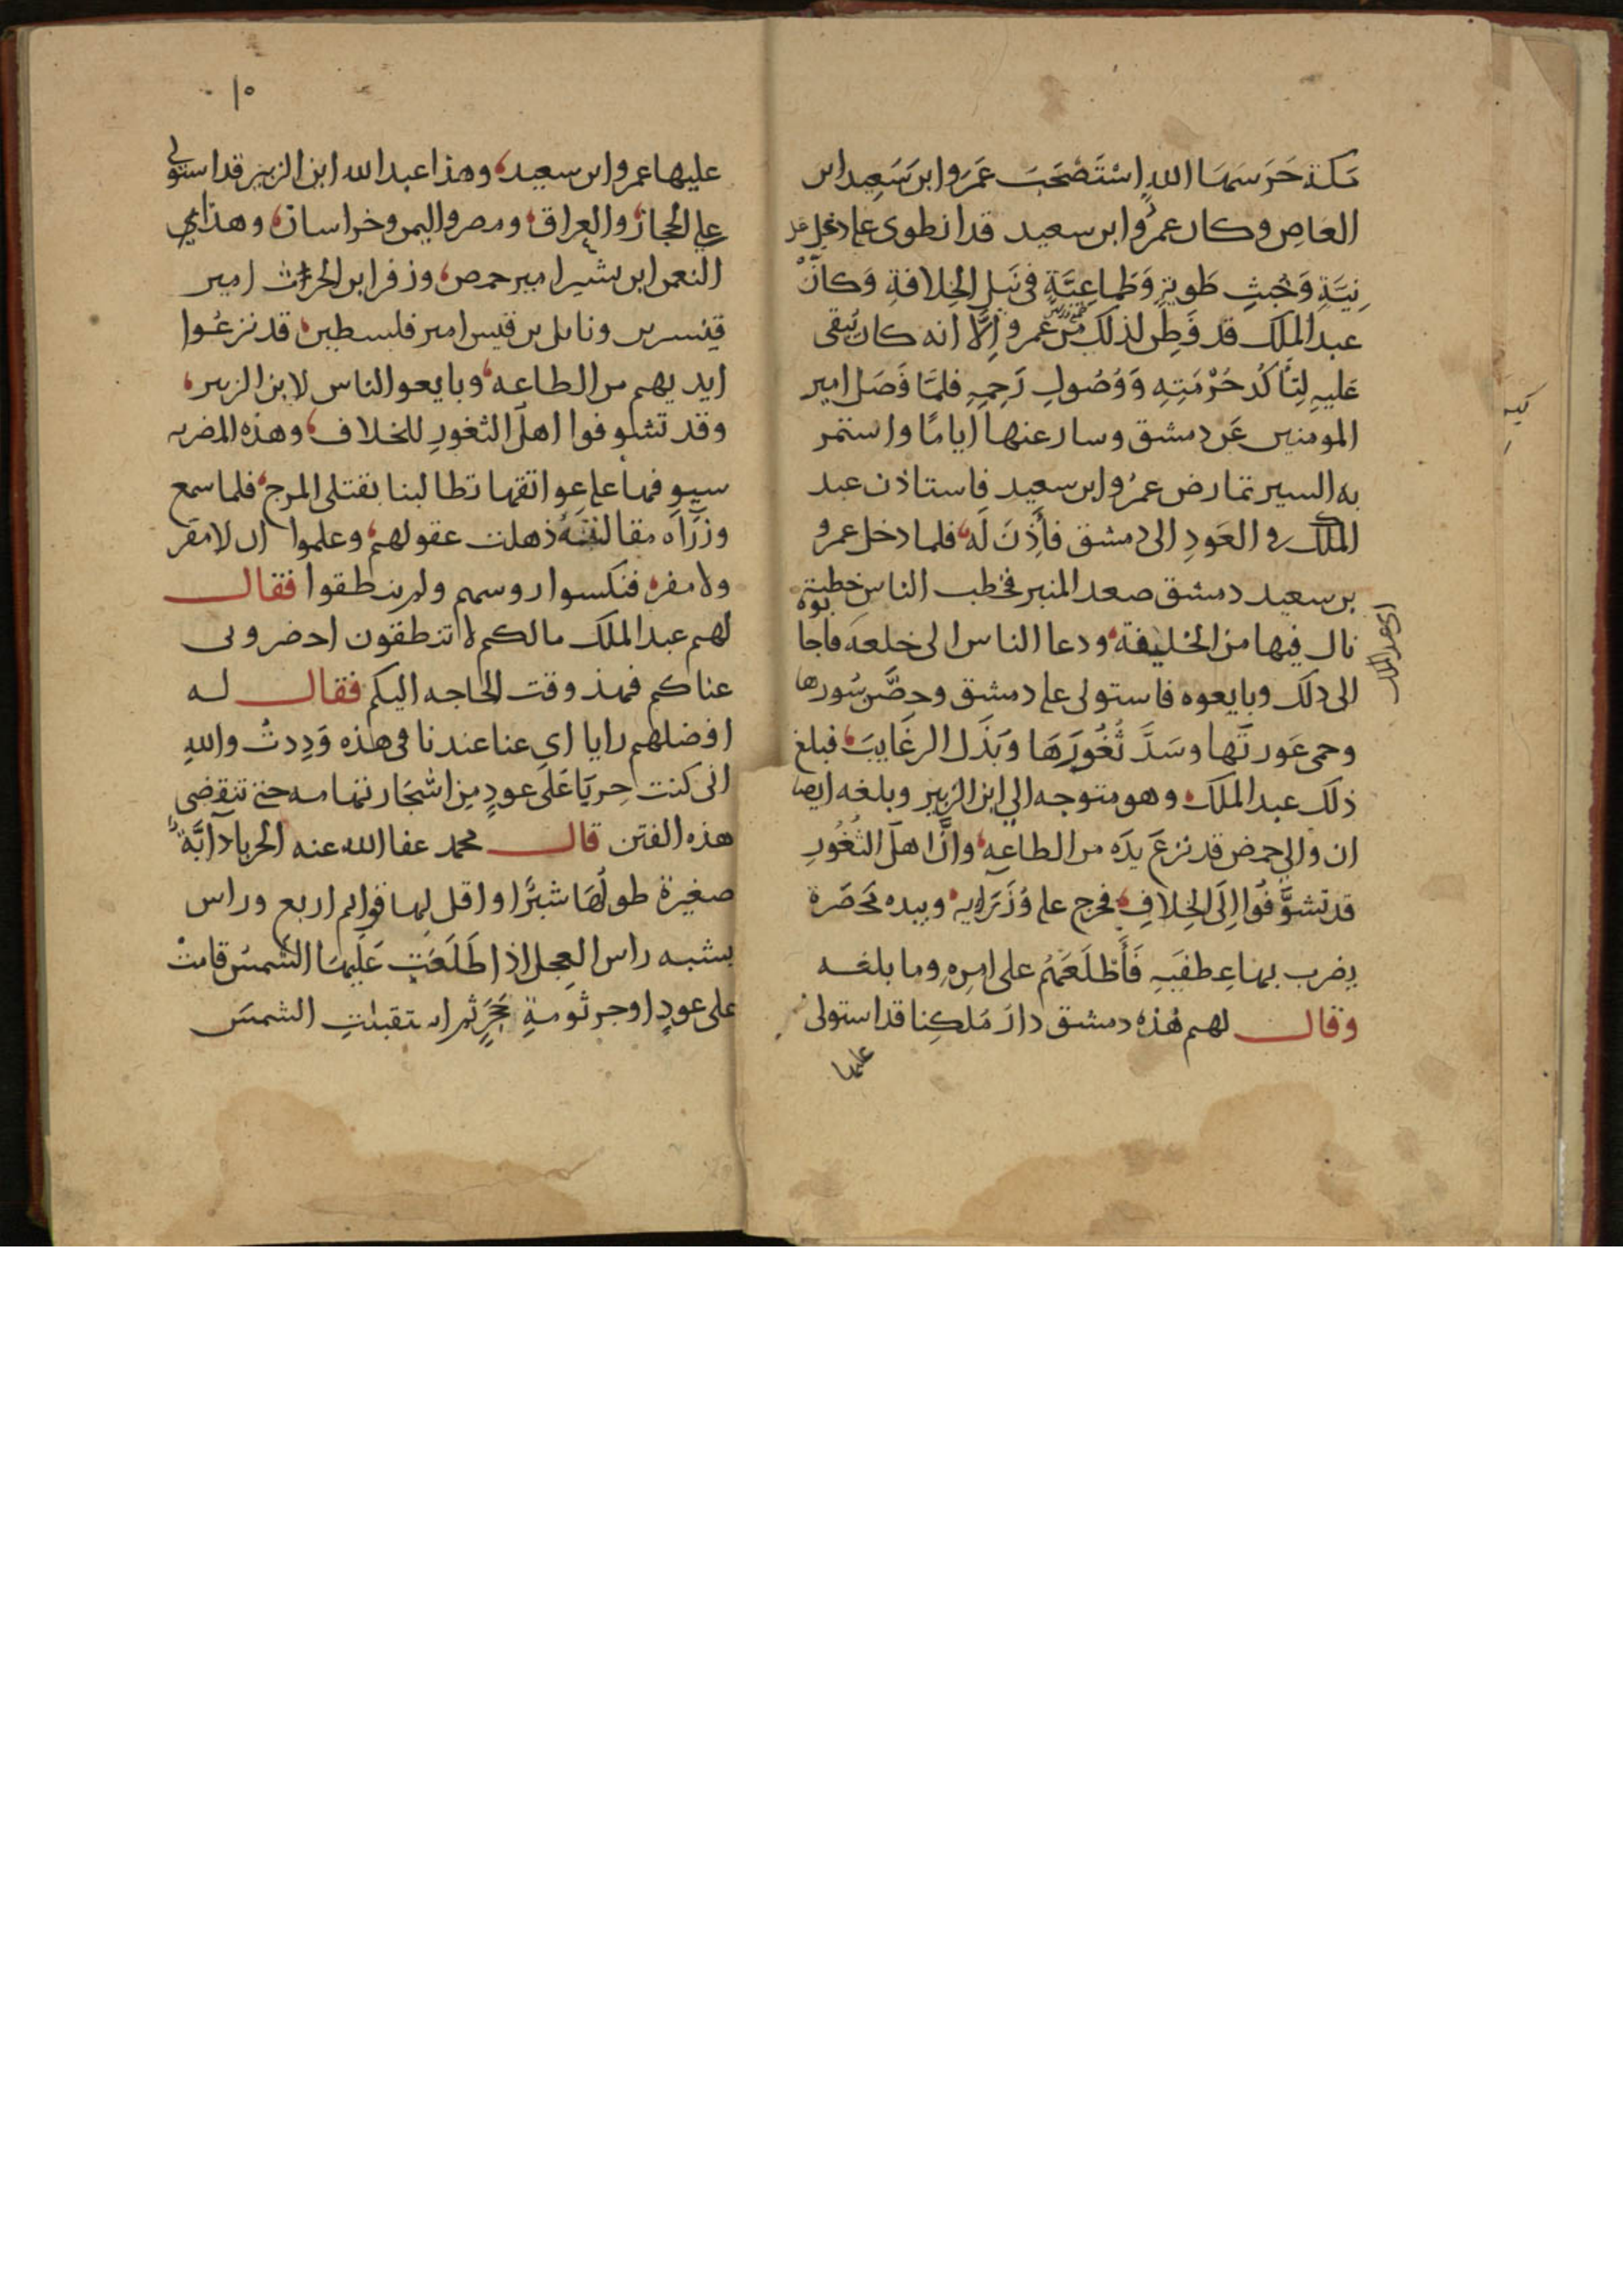 مكة حَرَسَهَا اللهِ اسْتَصْحَبَ عَمَروا ابنَ سَعِيد ابن
العَاصِ وكان عمرُوا ابن سعيد قد انطوى على دغل
نِيَّةٍ وَخُبْثِ طَوِيَّةٍ وَطَمَاعِيَّةٍ فى نَيلِ الخِلافةِ وَكانَ
عبد الملك قد فَطِنَ لذلك مِن عمرو اِلَّا انه كان يُبقى
عَليهِ لِتَأكُدِ حُرْمَتِهِ وَوُصُولِ رَحِمِهِ فلمَّا فَصَل امير
المومنين عَن دمشق وسار عنها ايامًا واستمر
به السير تمارض عمرُوا بن سعيد فاستاذن عبد
الملك فى العَودِ الى دمشق فأَذِنَ لَه فلما دخل عمرو
بن سعيد دمشق صعد المنبر فخطب الناسَ خطبة
نال فيها من الخليفة ودعا الناس الى خلعه فاجابوه
اى عبد الملك
الى ذلك وبايعوه فاستولى على دمشق وحصَّن سُورها
وحمى عَورتَها وسَدَّ ثُغُورَهَا وَبَذَل الرغَايبَ فبلغ
ذلك عبد الملك وهو متوجه الى ابن الزبير وبلغه ايضا
ان والى حمص قد نزعَ يدَه من الطاعه وانَّ اهلَ الثُغُورِ
قد تشوَّفُوا اِلَى الخِلافِ فخرج على وُزَرَايه وبيده مخصَرة
يضرب بها عِطفَيهِ فَأطْلَعَهُم على امرِه وما بلغه
وقال لهم هٰذه دمشق دارَ مَلكِنا قد استولى
عليها
١٥
عليها عمروا بن سعيد وهذا عبد الله ابن الزبير قد استولى
على الحجاز والعراق ومصر واليمن وخراسان وهذا
النعمن ابن بشير امير حمص وزفر ابن الحراث امير
قنسرين وناىل بن قيس امير فلسطين قد نزعُوا
ايديهم من الطاعه وبايعوا الناس لابن الزبير
وقد تشوفوا اهلَ الثغورِ للخلاف وهذه المضريه
سيوفها على عواتقها تطالبنا بقتلى المرج فلما سمع
وزَرَآه مقالته ذهلت عقولهم وعلموا ان لا مقر
ولا مفر فنكسوا روسهم ولم ينطقوا فقال
لهم عبد الملك مالكم لا تنطقون احضرونى
عناكم فهذ وقت الحاجه اليكم فقال له
افضلهم رايا اى عنا عندنا فى هذه وَدِدتُ والله
انى كنت حِربَا عَلَى عودٍ مِن اشجَار تهامه حتى تنقضى
هذه الفتن قال محمد عفا الله عنه الحربا دآبَّةٌ
صغيرة طولُهَا شبرًا او اقل لها قوايم اربع وراس
يشبه راس العِجلِ اذا طَلَعَت عَلَيهَا الشَمسُ قامتْ
على عودٍ او جرثومةِ حَجَرٍ ثم استقبلتِ الشمسَ